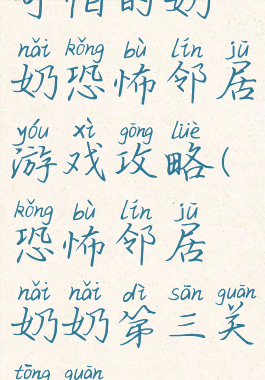 可怕的奶
nǎi kǒng bù lín jū
奶恐怖邻居
yóu xì gōng lüè
游戏攻略(
kǒng bù lín jū
恐怖邻居
nǎi nǎi dì sān guān
奶奶第三关
tōng guān